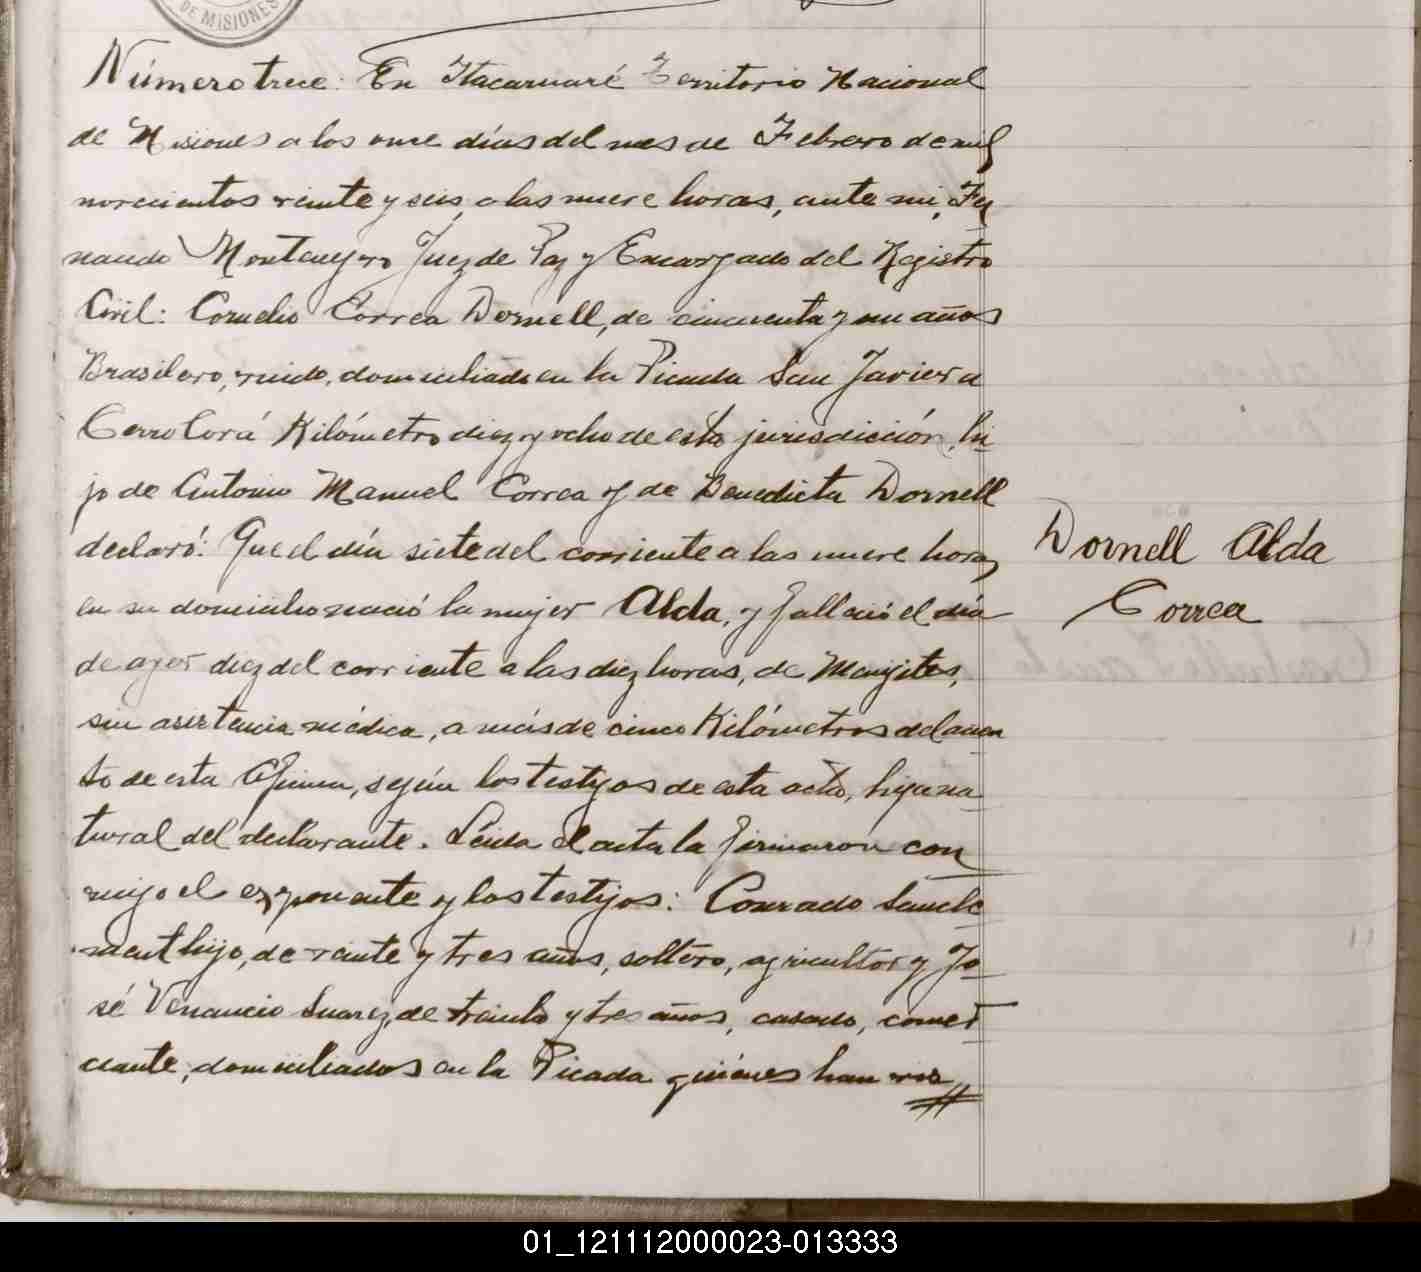 DE MISIONES
Número trece: En Itacaruaré Territorio Nacional
de Misiones a los once días del mes de Febrero de mil
novecientos veinte y seis, a las nueve horas, ante mi, Fer
nando Montenegro Juez de Paz y Encargado del Registro
Civil: Cornelio Correa Dornell, de cincuenta y un años
Brasilero, viudo, domiciliado en la Picada San Javier a
Cerro Corá Kilómetro diez y ocho de esta jurisdicción, hi-
jo de Antonio Manuel Correa y de Benedicta Dornell
declaró: Que el día siete del corriente a las nueve horas
en su domicilio nació la mujer Alda, y falleció el día
de ayer diez del corriente a las diez horas, de Meningitis,
sin asistencia médica, a más de cinco Kilómetros del asien
to de esta Oficina, según los testigos de esta acto, hija na-
tural del declarante. Leida el acta la firmaron con
migo el exponente y los testigos: Conrado Sancle
ment hijo, de veinte y tres años, soltero, agricultor y Jo-
sé Venancio Suarez, de treinta y tres años, casado, comer-
ciante, domiciliados en la Picada quiénes han vis
Dornell Alda
Correa
01_121112000023-013333